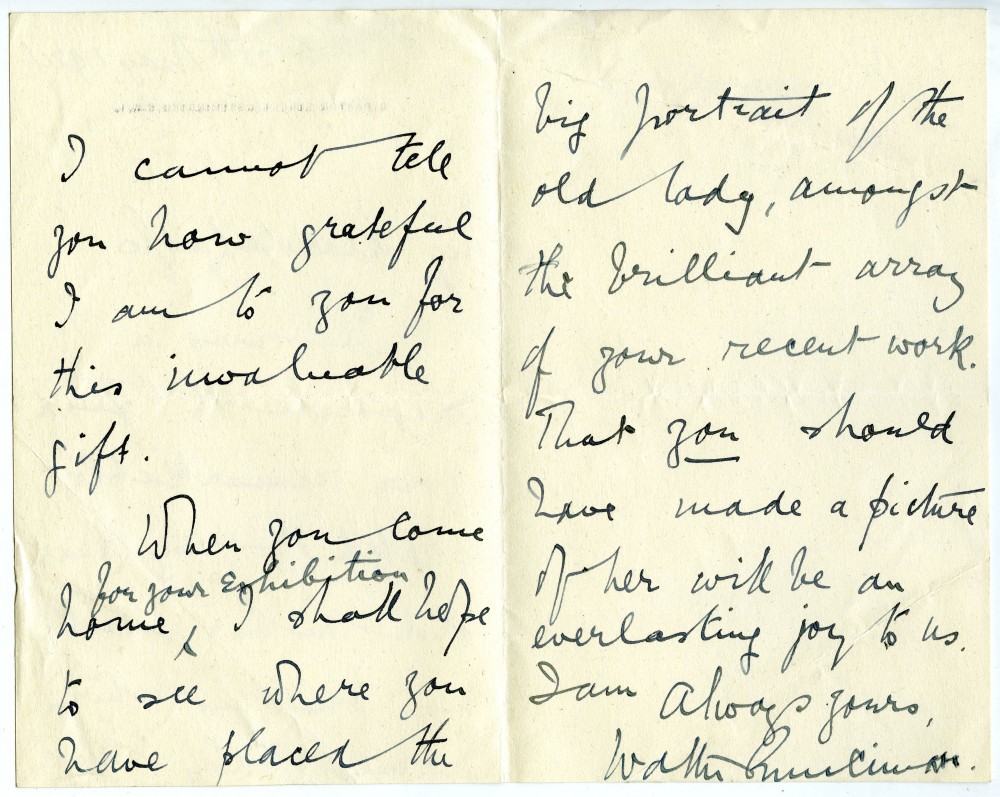 I cannot tell
you how grateful
I am to you for
this invaluable
gift.
When you come
for your Exhibition
home, I shall hope
to see where you
have placed the
big portrait of the
old lady, amongst
the brilliant array
of your recent work.
That you should
have made a picture
of her will be an
everlasting joy to us.
I am Always yours,
Walter Runciman.